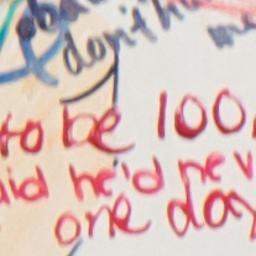 don't h
me
to be 100
aid he'd nev
one day